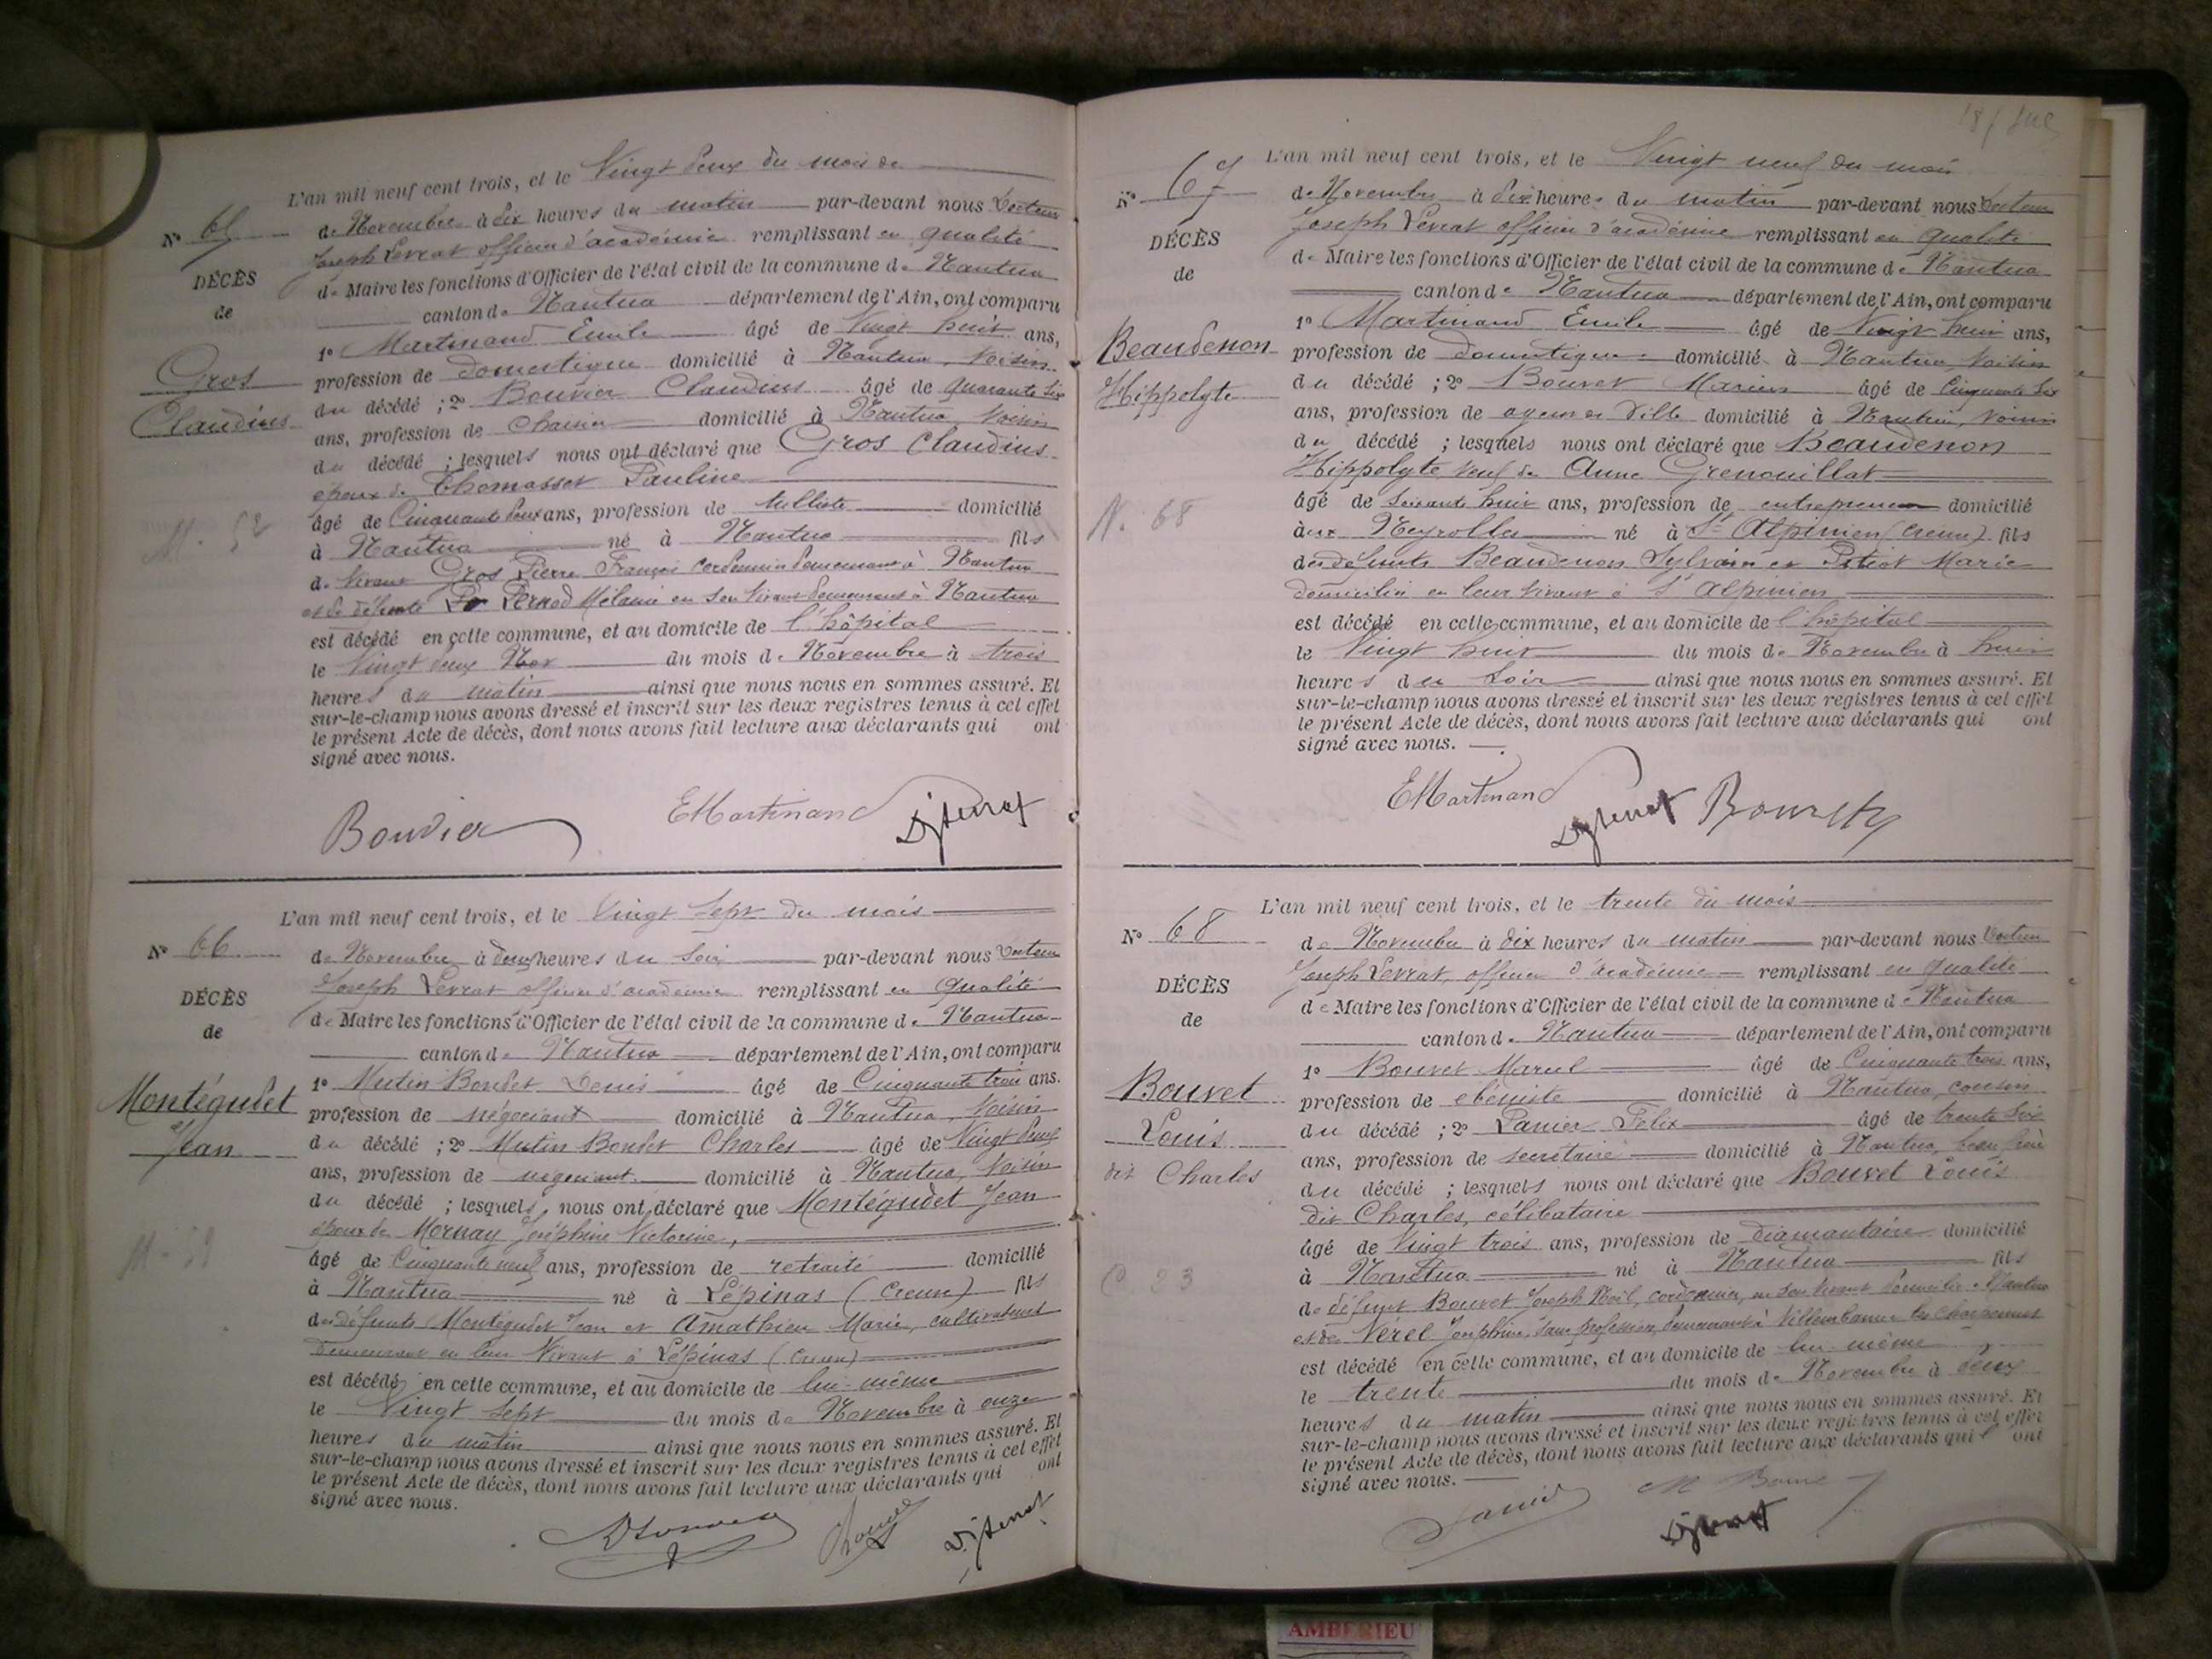 L'an mil neuf cent trois, et le Vingt deux du mois de
N° 65
de Novembre à dix heures du matin par-devant nous Docteur
Joseph Levrat officier d'académie remplissant en qualité
DÉCÈS
de Maire les fonctions d'Officier de l'état civil de la commune de Nantua
de
canton de Nantua département de l'Ain, ont comparu
1° Martinand Emile âgé de Vingt huit ans,
Gros
profession de domestique domicilié à Nantua, Voisin
Claudius
du décédé ; 2° Bouvier Claudius âgé de quarante six
ans, profession de Chaisier domicilié à Nantua Voisin
du décédé ; lesquels nous ont déclaré que Gros Claudius
époux de Thomasset Pauline
M. 52
âgé de Cinquante deux ans, profession de tulliste domicilié
à Nantua né à Nantua fils
de vivant Gros Pierre François cordonnier demeurant à Nantua
et de défunte Pernod Mélanie en son vivant demeurant à Nantua
est décédé en cette commune, et au domicile de l'hôpital
le Vingt deux Nov du mois de Novembre à trois
heures du matin ainsi que nous nous en sommes assuré. Et
sur-le-champ nous avons dressé et inscrit sur les deux registres tenus à cet effet
le présent Acte de décès, dont nous avons fait lecture aux déclarants qui ont
signé avec nous.
Bouvier EMartinand DJLevrat
L'an mil neuf cent trois, et le Vingt sept du mois
N° 66
de Novembre à deux heures du soir par-devant nous Docteur
Joseph Levrat officier d'académie remplissant en qualité
DÉCÈS
de Maire les fonctions d'Officier de l'état civil de la commune de Nantua
de
canton de Nantua département de l'Ain, ont comparu
1° Mutin Boudet Denis âgé de Cinquante trois ans.
Montégudet
profession de négociant domicilié à Nantua, Voisin
Jean
du décédé ; 2° Mutin Boudet Charles âgé de Vingt deux
ans, profession de négociant domicilié à Nantua, Voisin
du décédé ; lesquels nous ont déclaré que Montégudet Jean
époux de Mornay Joséphine Victorine,
M - 59
âgé de Cinquante neuf ans, profession de retraité domicilié
à Nantua né à Lépinas (Creuse) fils
des défunts Montégudet Jean et Amathieu Marie, cultivateurs
demeurant en leur Vivant à Lépinas (Creuse)
est décédé en cette commune, et au domicile de lui-même
le Vingt sept du mois de Novembre à onze
heures du matin ainsi que nous nous en sommes assuré. Et
sur-le-champ nous avons dressé et inscrit sur les deux registres tenus à cet effet
le présent Acte de décès, dont nous avons fait lecture aux déclarants qui ont
signé avec nous.
DJLevrat
L'an mil neuf cent trois, et le Vingt neuf du mois
N° 67
de Novembre à dix heures du matin par-devant nous Docteur
Joseph Levrat officier d'académie remplissant en qualité
DÉCÈS
de Maire les fonctions d'Officier de l'état civil de la commune de Nantua
de
canton de Nantua département de l'Ain, ont comparu
1° Martinand Emile âgé de Vingt huit ans,
Beaudenon
profession de domestique domicilié à Nantua, Voisin
Hippolyte
du décédé ; 2° Bouvet Marius âgé de Cinquante six
ans, profession de agent de Ville domicilié à Nantua, Voisin
du décédé ; lesquels nous ont déclaré que Beaudenon
Hippolyte veuf de Anne Grenouillat
V. 68
âgé de Soixante huit ans, profession de entrepreneur domicilié
aux Neyrolles né à St Alpinien (Creuse) fils
des défunts Beaudenon Sylvain et Petiot Marie
domiciliés en leur vivant à St Alpinien
est décédé en cette commune, et au domicile de l'hôpital
le Vingt huit du mois de Novembre à huit
heures du soir ainsi que nous nous en sommes assuré. Et
sur-le-champ nous avons dressé et inscrit sur les deux registres tenus à cet effet
le présent Acte de décès, dont nous avons fait lecture aux déclarants qui ont
signé avec nous.
EMartinand DJLevrat Bouvet
L'an mil neuf cent trois, et le trente du mois
N° 68
de Novembre à dix heures du matin par-devant nous Docteur
Joseph Levrat, officier d'académie remplissant en qualité
DÉCÈS
de Maire les fonctions d'Officier de l'état civil de la commune de Nantua
de
canton de Nantua département de l'Ain, ont comparu
1° Bouvet Marcel âgé de Cinquante trois ans,
Bouvet
profession de ébéniste domicilié à Nantua, cousin
Louis
du décédé ; 2° Panier Félix âgé de trente six
dit Charles
ans, profession de secrétaire domicilié à Nantua, beau frère
du décédé ; lesquels nous ont déclaré que Bouvet Louis
dit Charles, célibataire
C 23
âgé de Vingt trois ans, profession de diamantaire domicilié
à Nantua né à Nantua fils
de défunt Bouvet Joseph Noël, cordonnier, en son vivant domicilié à Nantua
et de Nérel Joséphine, sans profession, demeurant à Villeurbanne les Charpennes
est décédé en cette commune, et au domicile de lui-même
le trente du mois de Novembre à deux
heures du matin ainsi que nous nous en sommes assuré. Et
sur-le-champ nous avons dressé et inscrit sur les deux registres tenus à cet effet
le présent Acte de décès, dont nous avons fait lecture aux déclarants qui ont
signé avec nous.
Panier M Bouvet
DJLevrat
AMBERIEU